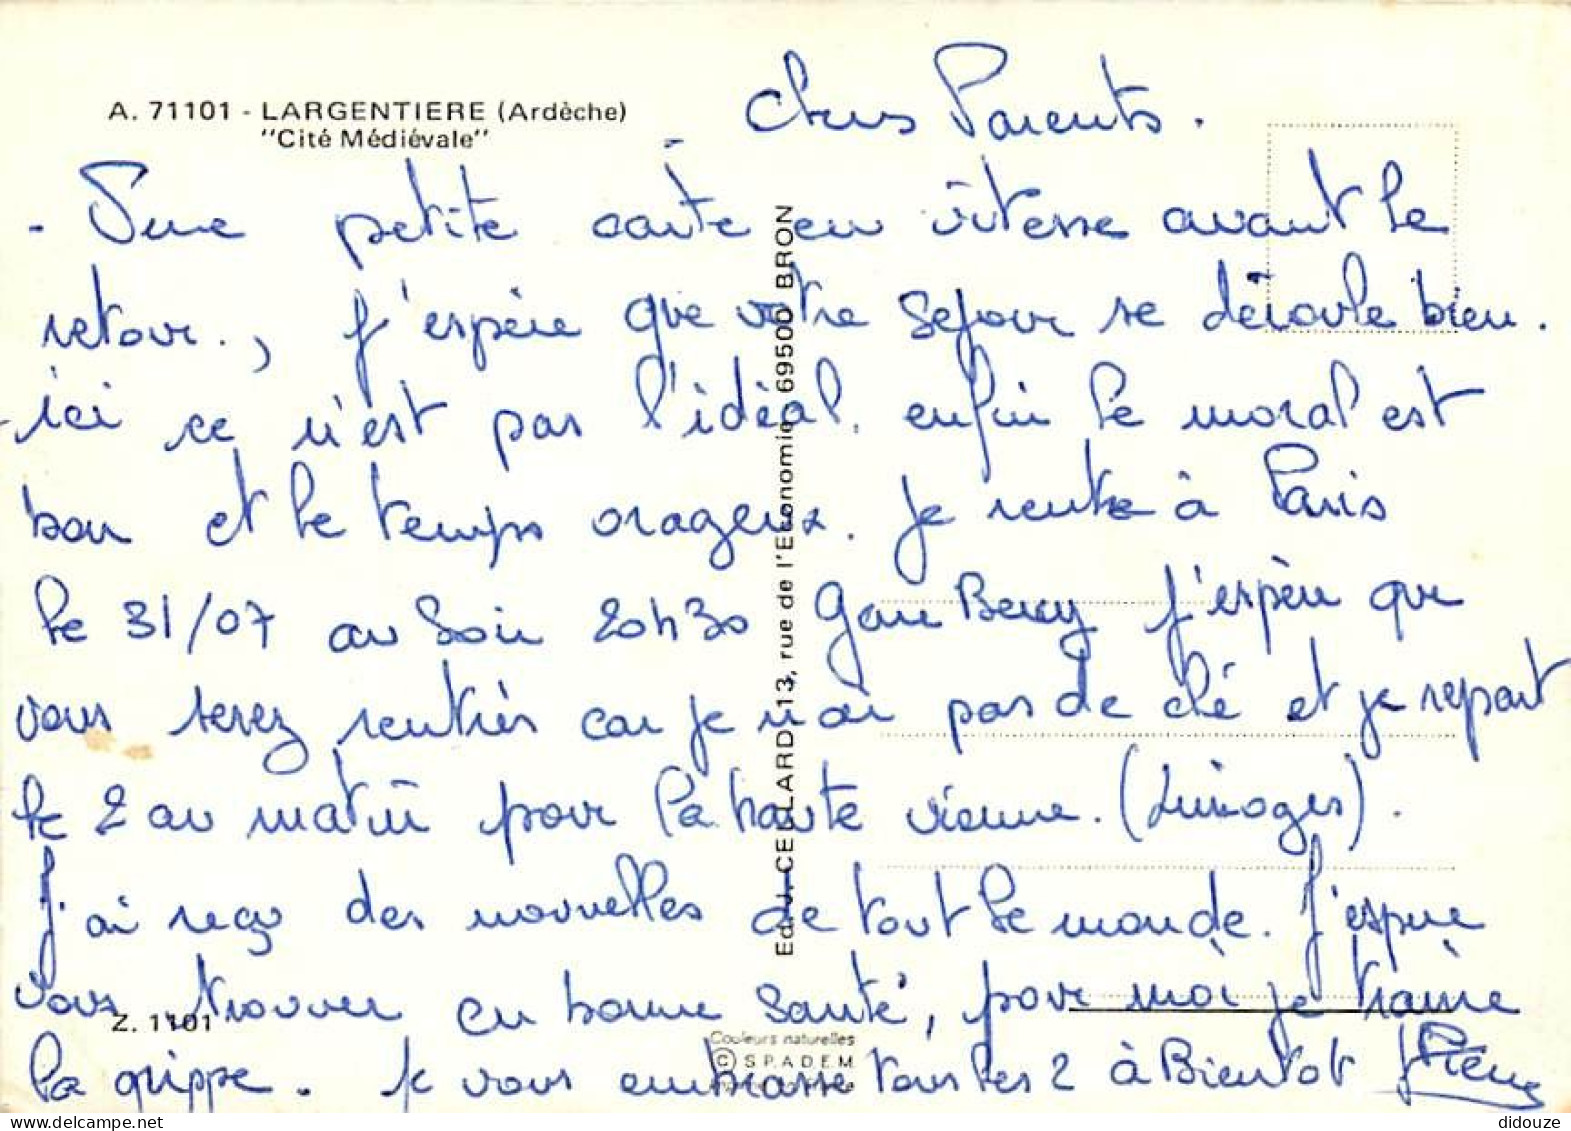 A. 71101 - LARGENTIERE (Ardèche)
"Cité Médiévale"
Chers Parents.
- Une petite carte en vitesse avant le
retour., j'espère que votre sejour se déroule bien.
- ici ce n'est pas l'idéal. enfin le moral est
bon et le temps orageux. je rentre à Paris
le 31/07 au soir 20h30 Gare Bercy j'espère que
vous serez rentrés car je n'ai pas de clé et je repart
le 2 au matin pour la haute vienne. (Limoges).
J'ai reçu des nouvelles de tout le monde. J'espere
vous trouver en bonne santé, pour moi je traine
la grippe. je vous embrasse tous les 2 à Bientot
Ed. J. CELLARD 13, rue de l'Economie 69500 BRON
Z. 1101
Couleurs naturelles
© S.P.A.D.E.M
didouze